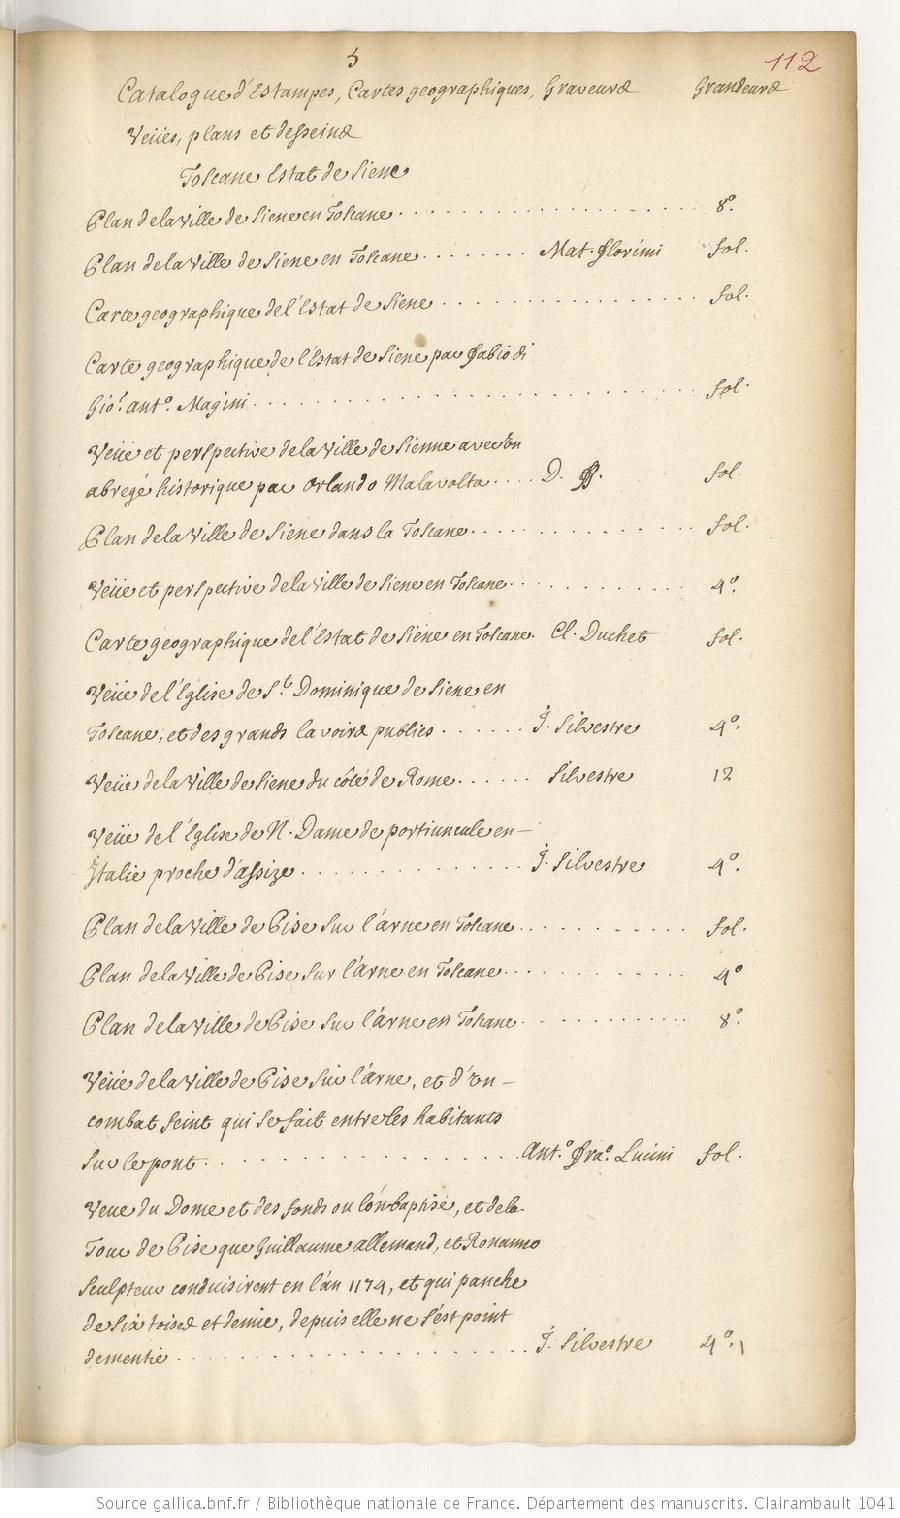 5
112
Catalogue d'Estampes, Cartes geographiques, Graveurs Grandeurs
Veües, plans et desseins
Toscane Estat de Siene
Plan de la Ville de Siene en Toscane . . . 8º.
Plan de la Ville de Siene en Toscane . . . Mat. Florimi fol.
Carte geographique de l'Estat de Siene . . . fol.
Carte geographique de l'Estat de Siene par Fabio di
Gio! antº. Magini . . . fol.
Veüe et perspective de la Ville de Sienne avec un
abregé historique par Orlando Malavolta . . . D. B. fol.
Plan de la Ville de Siene dans la Toscane . . . fol.
Veüe et perspective de la Ville de Siene en Toscane . . . 4º.
Carte geographique de l'Estat de Siene en Toscane. Cl. Duchet fol.
Veüe de l'Eglise de St. Dominique de Siene en
Toscane, et des grands lavoirs publics . . . J. Silvestre 4º.
Veüe de la Ville de Siene du côté de Rome . . . Silvestre 12
Veüe de l'Eglise de N. Dame de portiuncule en -
Italie proche d'assize . . . J. Silvestre 4º.
Plan de la Ville de Pise sur l'arne en Toscane . . . fol.
Plan de la Ville de Pise sur l'Arne en Toscane . . . 4º
Plan de la Ville de Pise sur l'arne en Toscane . . . 8º.
Veüe de la Ville de Pise sur l'arne, et d'un -
combat feint qui se fait entre les habitants
sur le pont . . . Antº. Fraº. Lucini fol.
Veue du Dome et des fonds ou l'on baptise, et de la
Tour de Pise que Guillaume allemand, et Bonanno
sculpteur conduisirent en l'an 1174, et qui panche
de six toises et demie, depuis elle ne s'est point
dementie . . . J. Silvestre 4º.
Source gallica.bnf.fr / Bibliothèque nationale de France. Département des manuscrits. Clairambault 1041